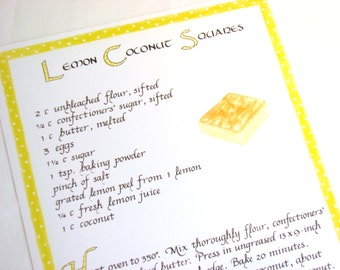 Lemon Coconut Squares
2 c unbleached flour, sifted
½ c confectioners' sugar, sifted
1 c butter, melted
3 eggs
1½ c sugar
1 tsp. baking powder
pinch of salt
grated lemon peel from 1 lemon
¼ c fresh lemon juice
1 c coconut
oven to 350°. Mix thoroughly flour, confectioners'
butter. Press in ungreased 13 x 9-inch
edge. Bake 20 minutes.
coconut, about